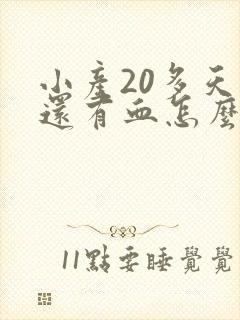 小產20多天
還有血怎麼
11點要睡覺覺